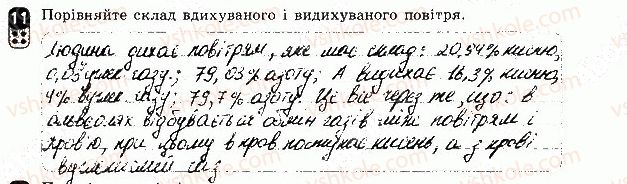 11 Порівняйте склад вдихуваного і видихуваного повітря.
Людина дихає повітрям, яке має склад: 20,94% кисню,
0,03% вугле газу; 79,03% азоту; А видихає 16,3% кисню,
4% вугле газу; 79,7% азоту. Це все через те, що: в
альвеолах відбувається обмін газів між повітрям і
кров'ю, при цьому в кров поступає кисень, а з крові
вуглекислий газ